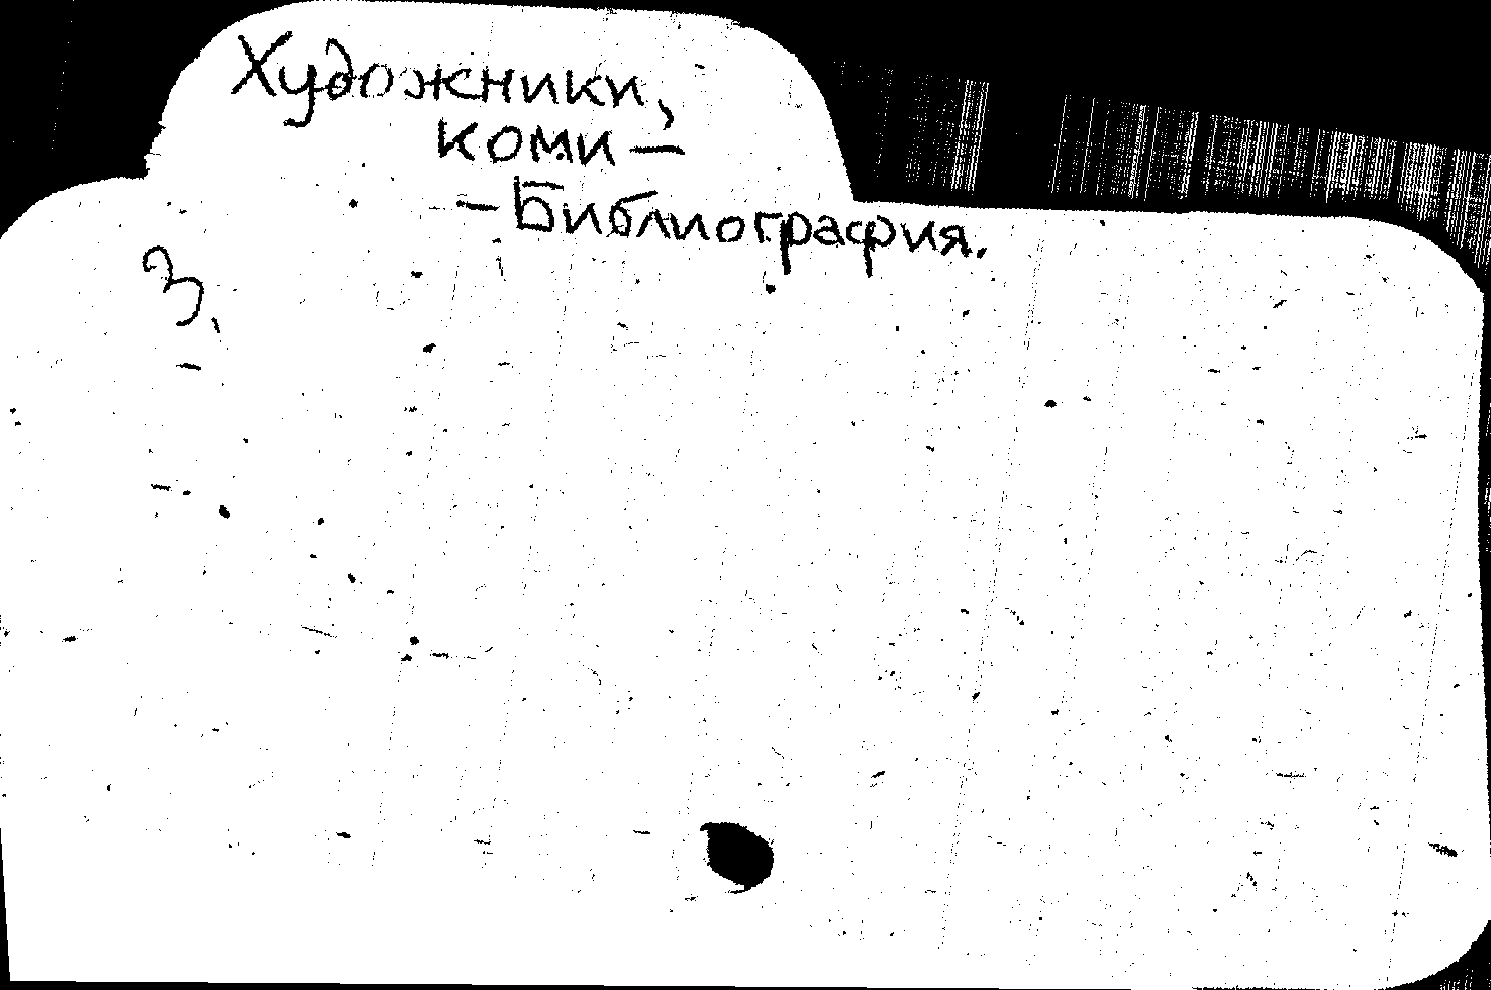 Художники,
коми —
— Библиография.
З.